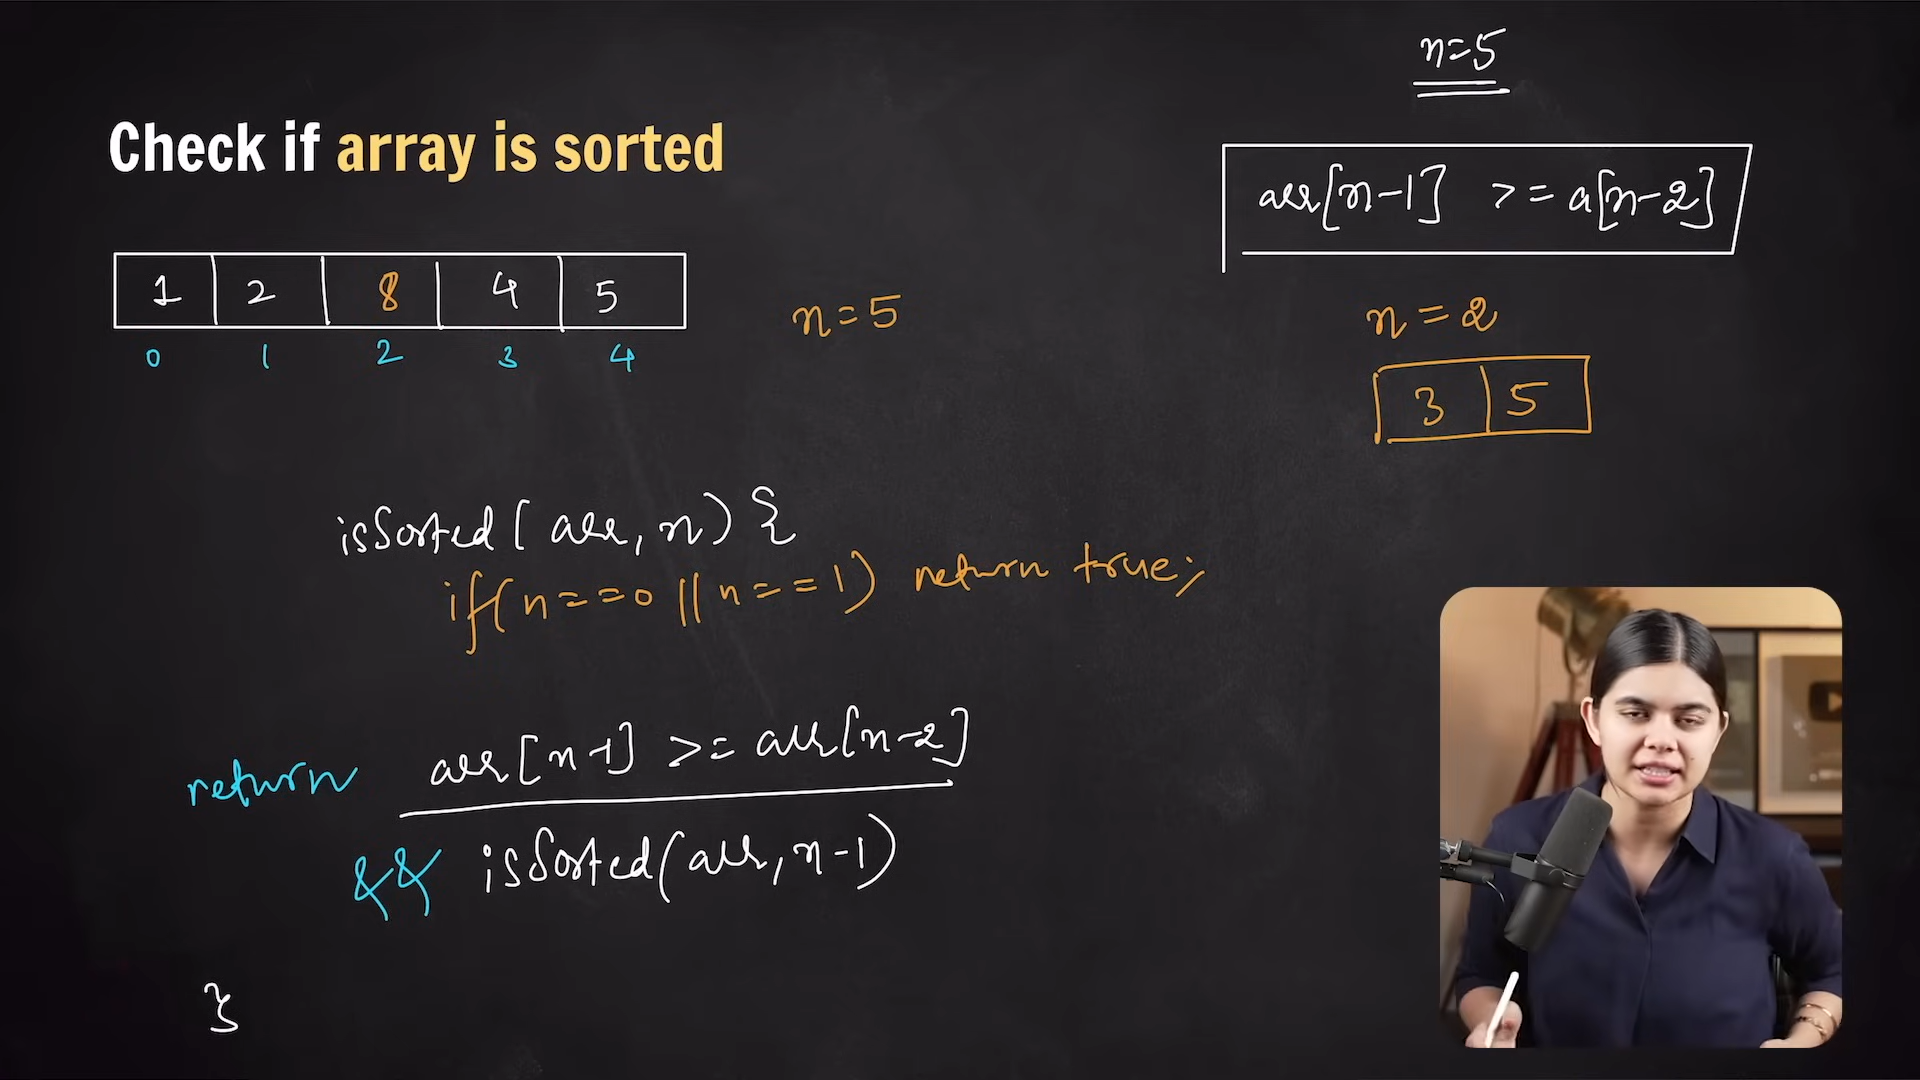 n=5
Check if array is sorted
arr[n-1] >= a[n-2]
1 2 8 4 5
0 1 2 3 4
n=5
n=2
3 5
isSorted(arr, n) {
if(n==0 || n==1) return true;
return arr[n-1] >= arr[n-2]
&& isSorted(arr, n-1)
}